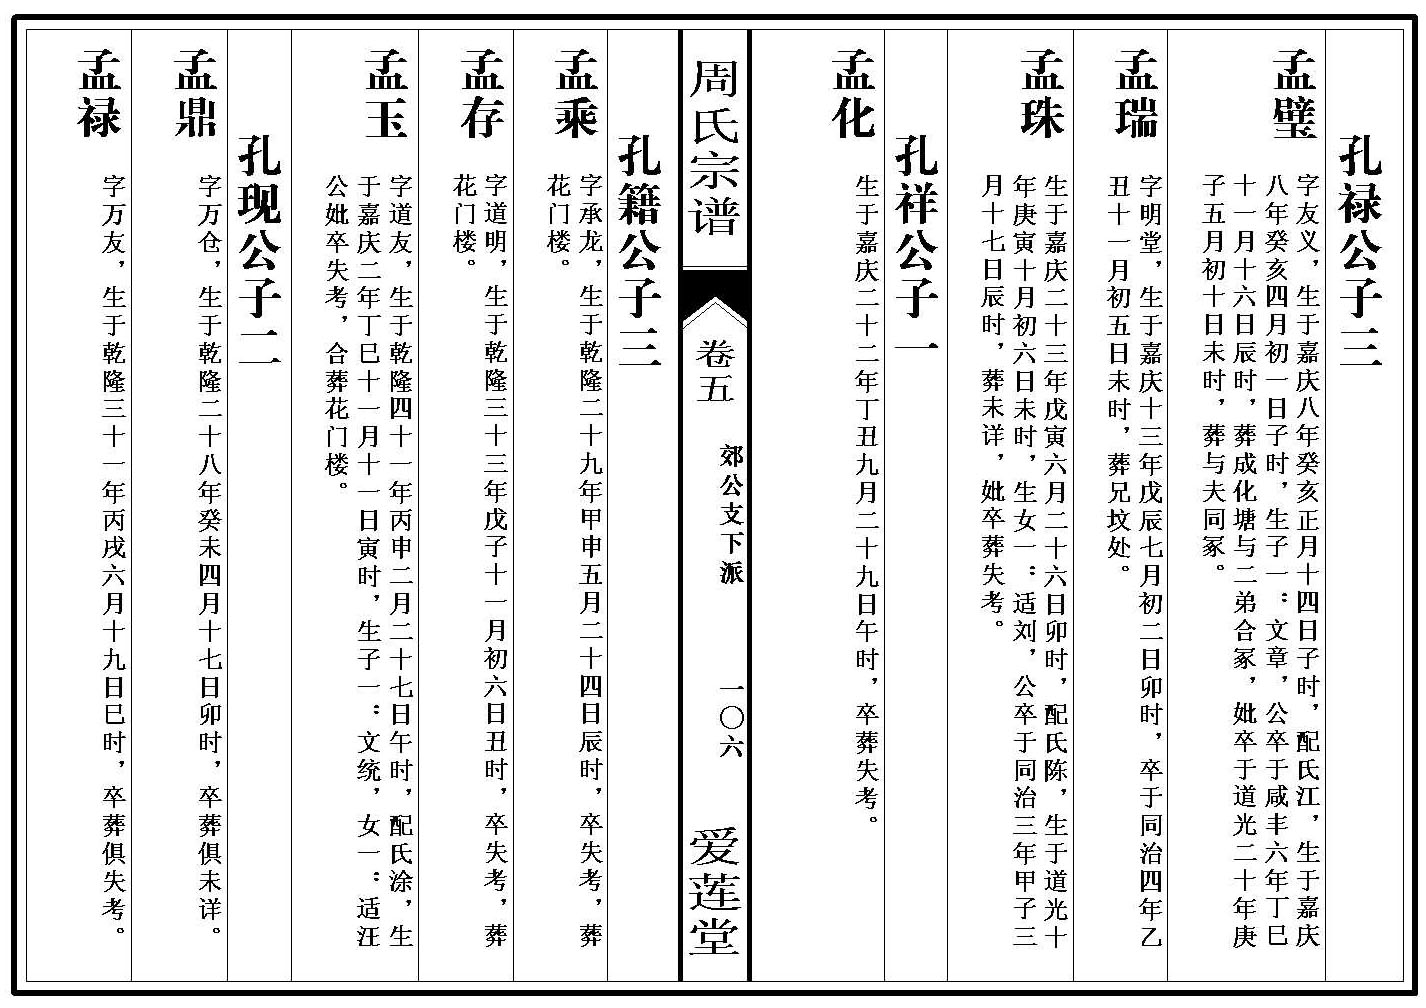 孔禄公子三
孟璧
字友义，生于嘉庆八年癸亥正月十四日子时，配氏江，生于嘉庆
八年癸亥四月初一日子时，生子一：文章，公卒于咸丰六年丁巳
十一月十六日辰时，葬成化塘与二弟合冢，妣卒于道光二十年庚
子五月初十日未时，葬与夫同冢。
孟瑞
字明堂，生于嘉庆十三年戊辰七月初二日卯时，卒于同治四年乙
丑十一月初五日未时，葬兄坟处。
孟珠
生于嘉庆二十三年戊寅六月二十六日卯时，配氏陈，生于道光十
年庚寅十月初六日未时，生女一：适刘，公卒于同治三年甲子三
月十七日辰时，葬未详，妣卒葬失考。
孔祥公子一
孟化
生于嘉庆二十二年丁丑九月二十九日午时，卒葬失考。
周氏宗谱
卷五
郊公支下派
一〇六
爱莲堂
孔籍公子三
孟乘
字承龙，生于乾隆二十九年甲申五月二十四日辰时，卒失考，葬
花门楼。
孟存
字道明，生于乾隆三十三年戊子十一月初六日丑时，卒失考，葬
花门楼。
孟玉
字道友，生于乾隆四十一年丙申二月二十七日午时，配氏涂，生
于嘉庆二年丁巳十一月十一日寅时，生子一：文统，女一：适汪
公妣卒失考，合葬花门楼。
孔现公子二
孟鼎
字万仓，生于乾隆二十八年癸未四月十七日卯时，卒葬俱未详。
孟禄
字万友，生于乾隆三十一年丙戌六月十九日巳时，卒葬俱失考。